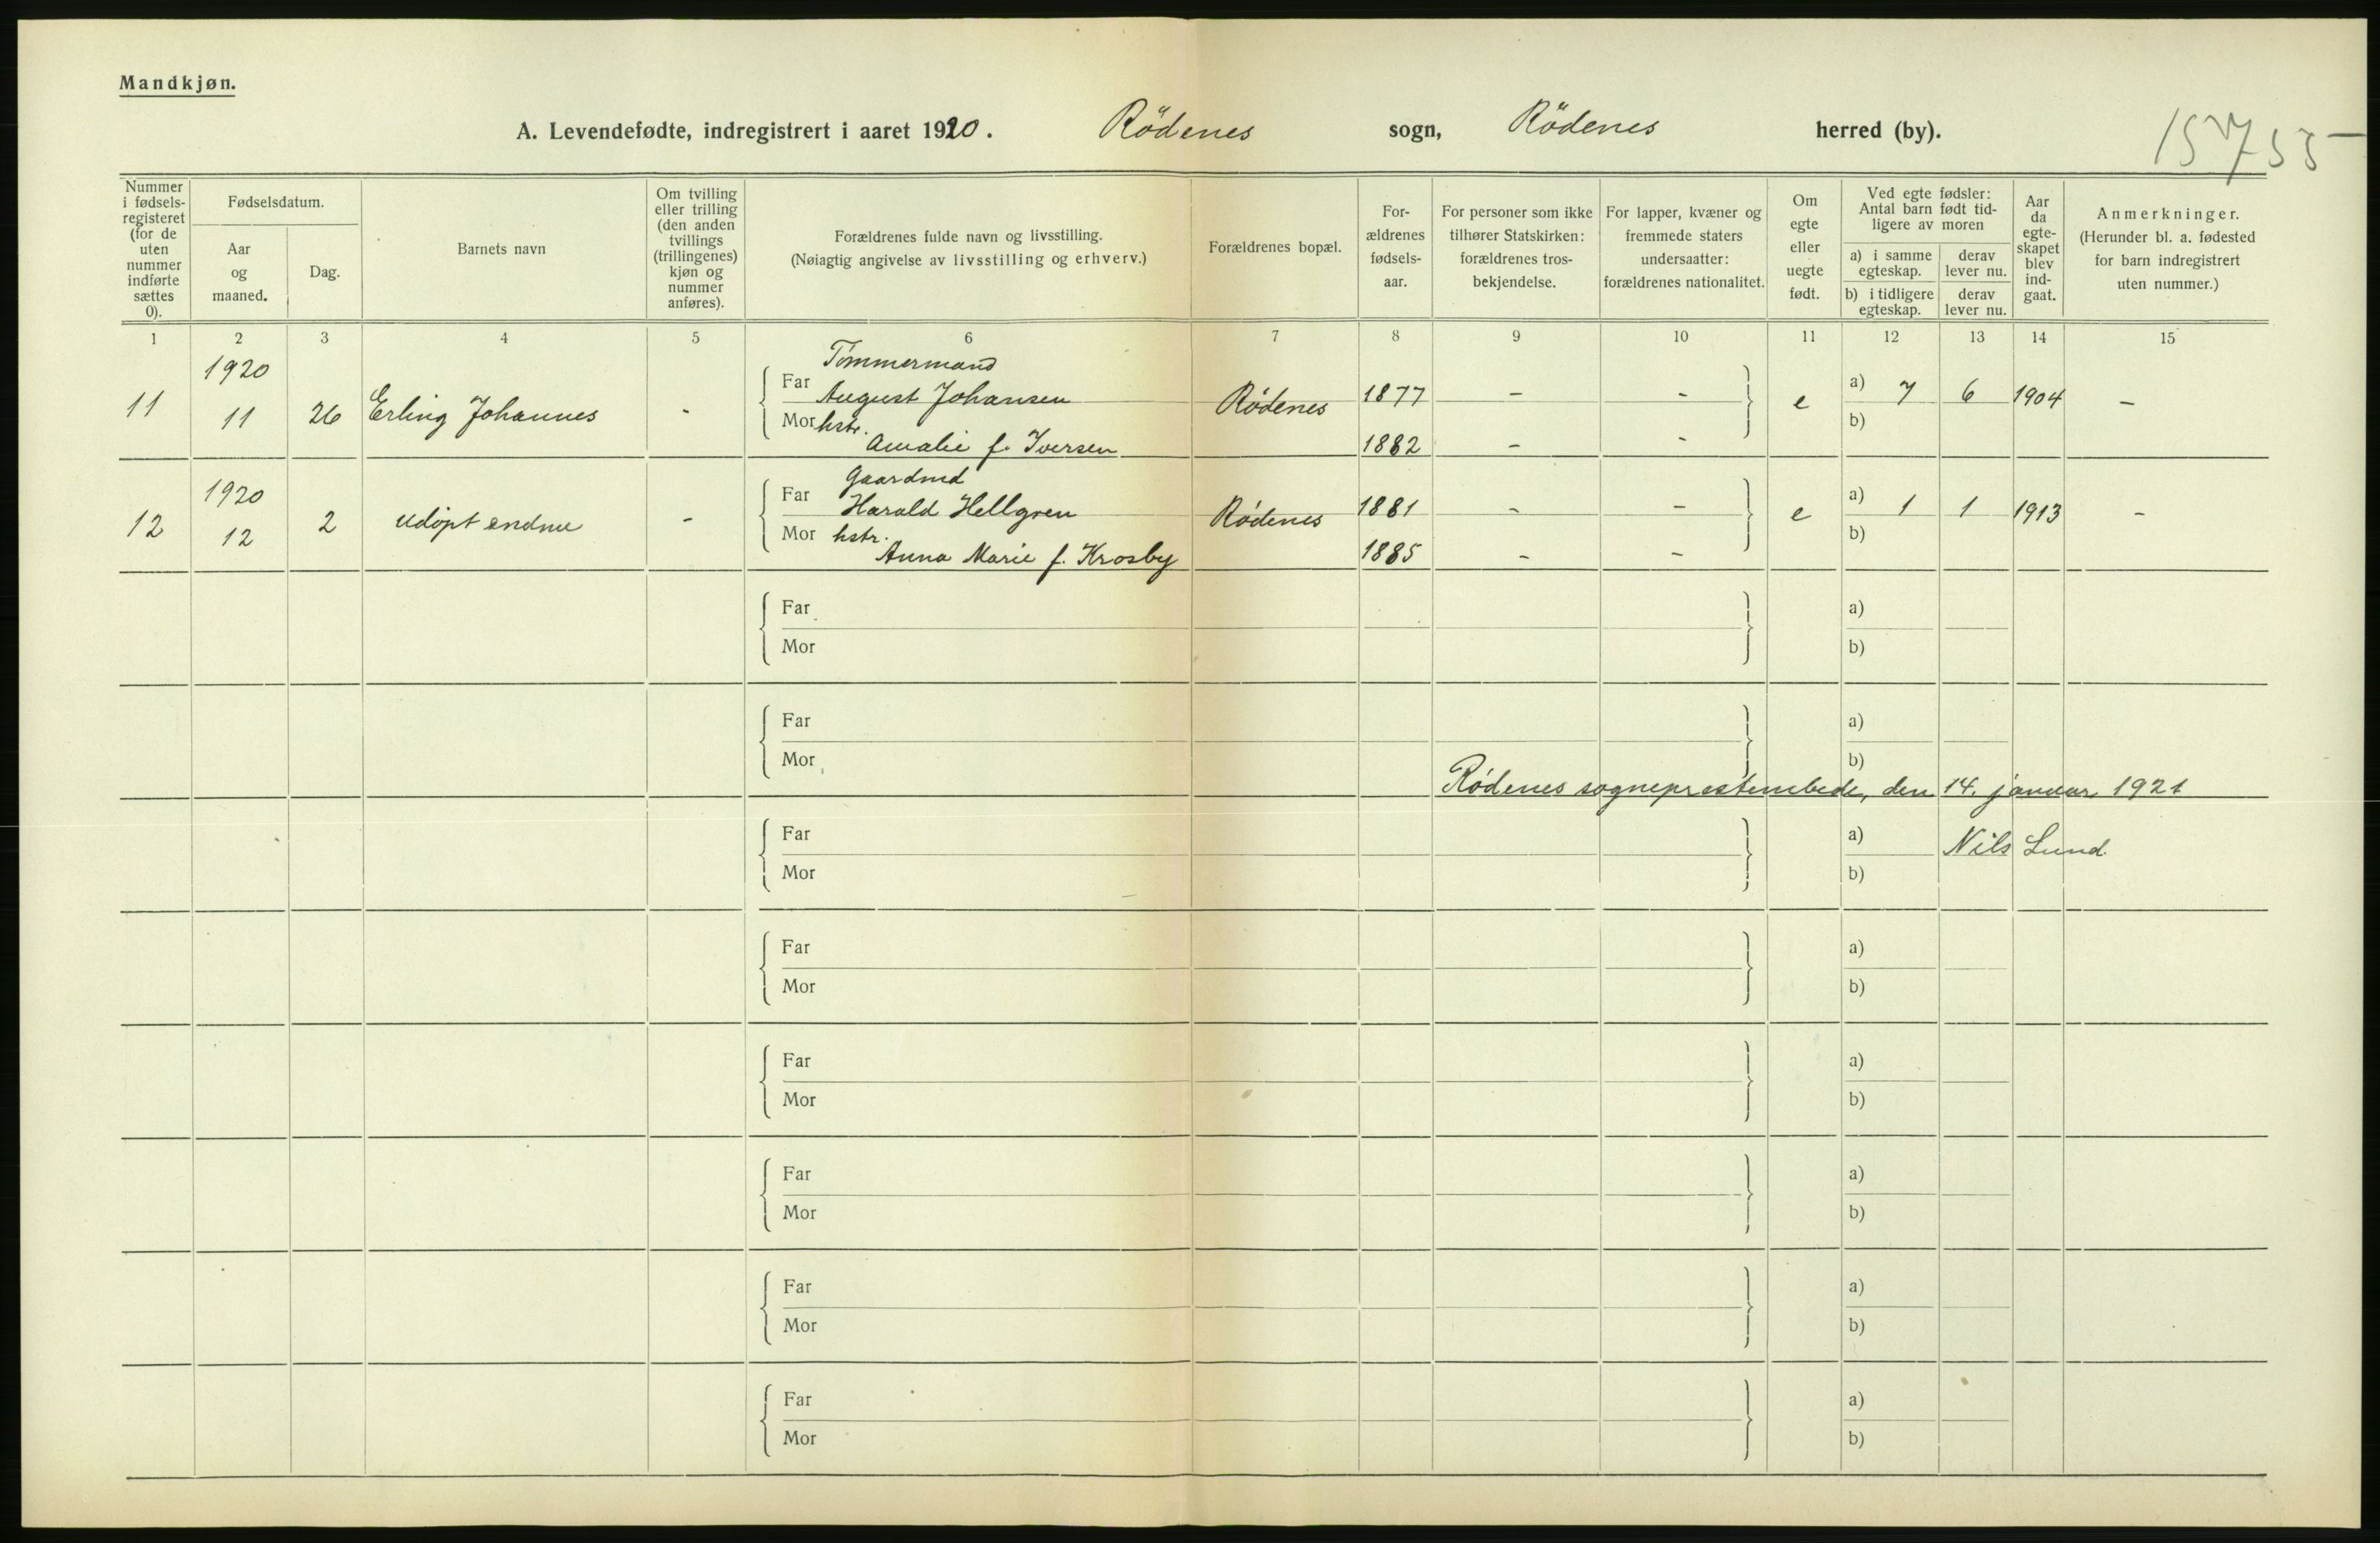 Mandkjøn.
A. Levendefødte, indregistrert i aaret 1920. Rödenes sogn, Rödenes herred (by).
Nummer i fødsels-registeret (for de uten nummer indførte sættes 0).
Fødselsdatum.
Aar og maaned.
Dag.
Barnets navn
Om tvilling eller trilling (den anden tvillings (trillingenes) kjøn og nummer anføres).
Forældrenes fulde navn og livsstilling.
(Nøiagtig angivelse av livsstilling og erhverv.)
Forældrenes bopæl.
For-ældrenes fødsels-aar.
For personer som ikke tilhører Statskirken: forældrenes tros-bekjendelse.
For lapper, kvæner og fremmede staters undersaatter: forældrenes nationalitet.
Om egte eller uegte født.
Ved egte fødsler: Antal barn født tid-ligere av moren
a) i samme egteskap.
derav lever nu.
b) i tidligere egteskap.
derav lever nu.
Aar da egte-skapet blev ind-gaat.
Anmerkninger.
(Herunder bl. a. fødested for barn indregistrert uten nummer.)
1 2 3 4 5 6 7 8 9 10 11 12 13 14 15
1920 Tömmermand
11 11 26 Erling Johannes - Far August Johansen Rödenes 1877 - - e a) 7 6 1904 -
Mor hstr. Amalie f. Iversen 1882 - - b)
1920 Gaardmd
12 12 2 udöpt endnu - Far Harald Hellgren Rödenes 1881 - - e a) 1 1 1913 -
Mor hstr. Anna Marie f. Krosby 1885 - - b)
Far a)
Mor b)
Far a)
Mor b)
Rödenes sogneprestembede, den 14. januar 1921
Far a) Nils Lund.
Mor b)
Far a)
Mor b)
Far a)
Mor b)
Far a)
Mor b)
Far a)
Mor b)
Far a)
Mor b)